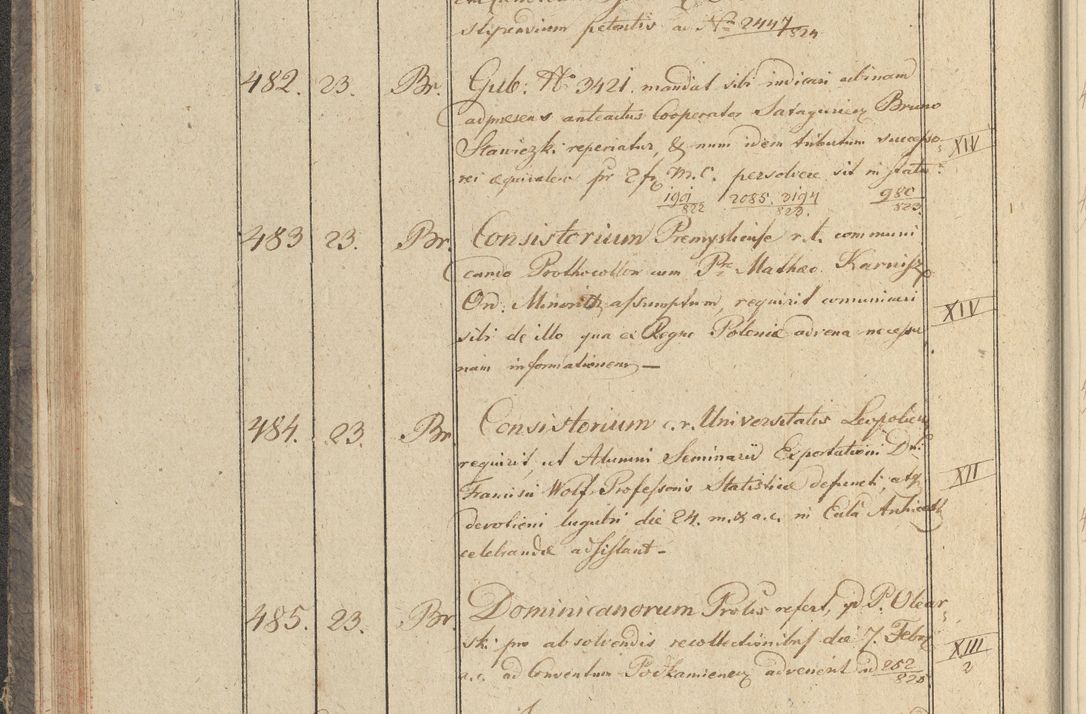 stipendium petentis ad Nrm 2447/824
482. 23. Br. Gub. No 3421. mandat sibi indicari ubinam
adpraesens anteactus Cooperator Bruno
Stawiczki reperiatur, & num idem tributum successo=
rei pr 2 fr M. C. persolvere sit in statu. XIV
1901/822 2085. 3194/823. 980/823.
483 23. Br. Consistorium Premysliense r. l. communi
cando Prothocollon cum Pre Mathaeo Karnisz
Ord. Minorit. assumptum, requirit comunicari
sibi de illo qua ex Regno Poloniae advena necessa XIV
riam informationem —
484. 23. Br. Consistorium c. r. Universitatis Leopoliens
requirit, ut Alumni Seminarii Exportationi Dni
Francisci Wolf Professoris Statisticae defuncti, atq XII
devotioni lugubri die 24. m. & a. c. in Ecclã
celebrandae adsistant –
485. 23. Br. Dominicanorum Prolis refert, qd P. Olear
ski pro absolvendis recollectionibus die 7. Febr
a. c. ad Conventum Podkamienens advenerit ad 252/825 XIII/2